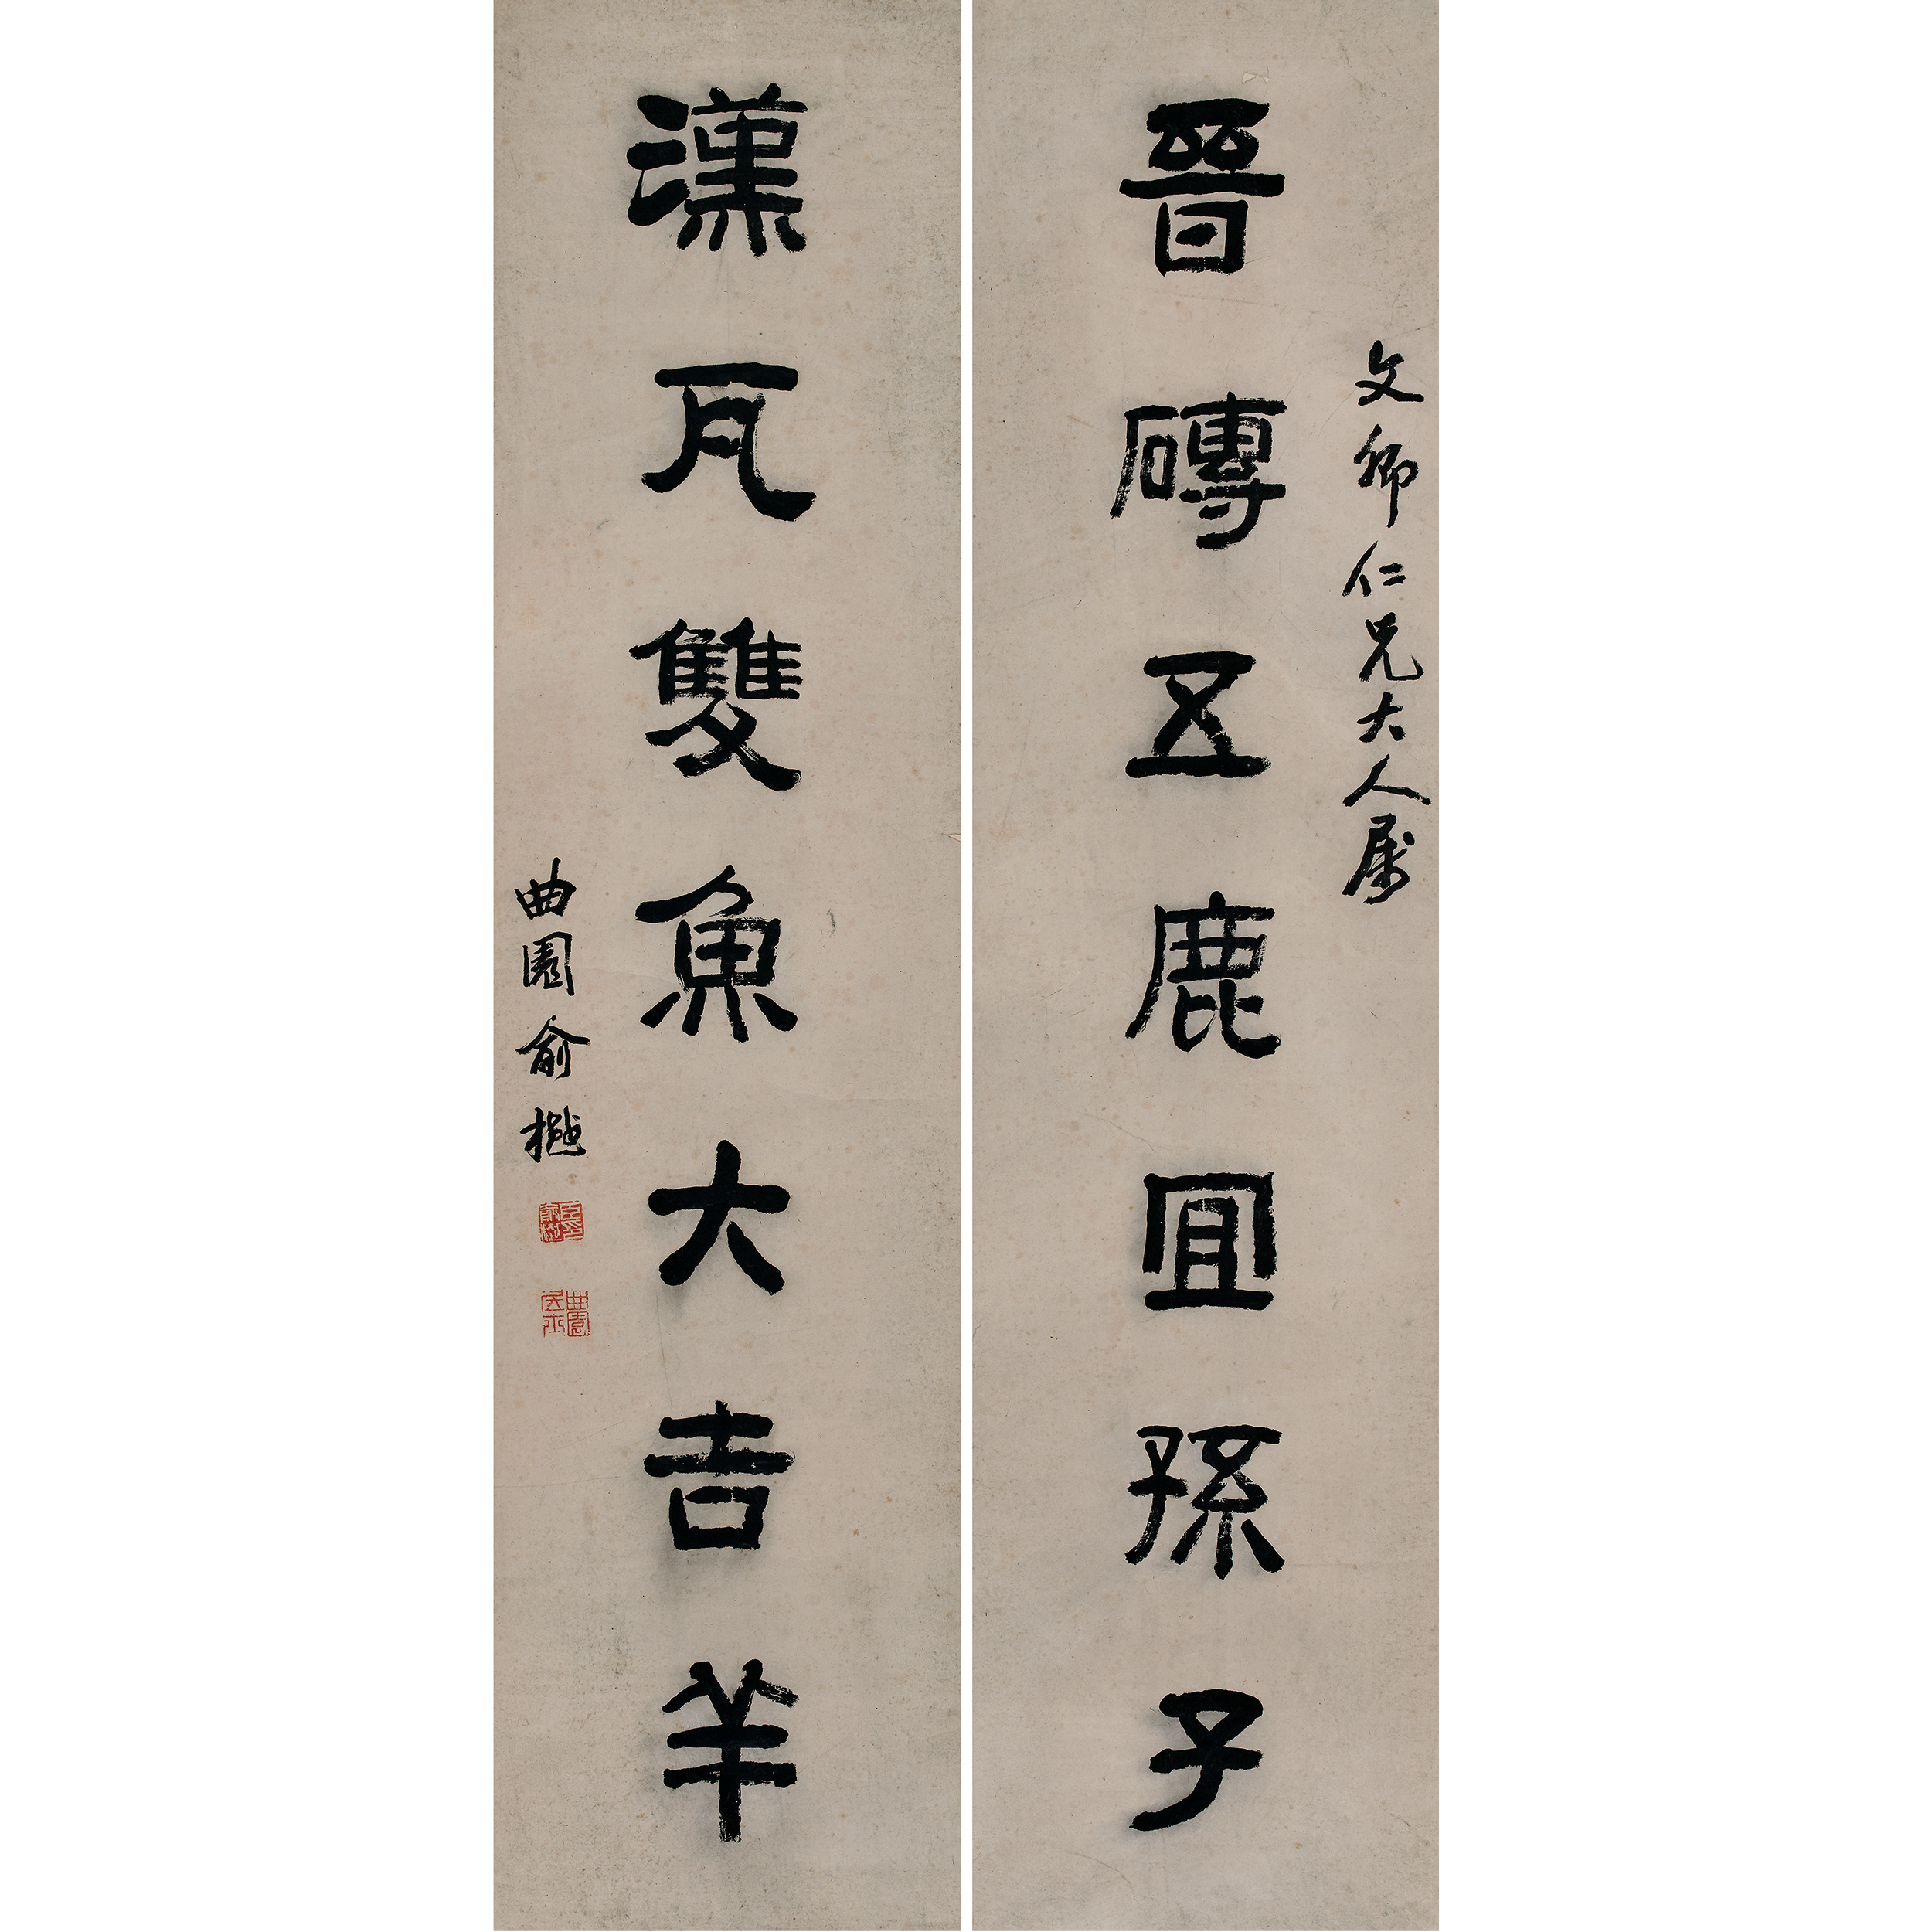 文卿仁兄大人属
晉磚五鹿宜孫子
漢瓦雙魚大吉羊
曲園俞樾